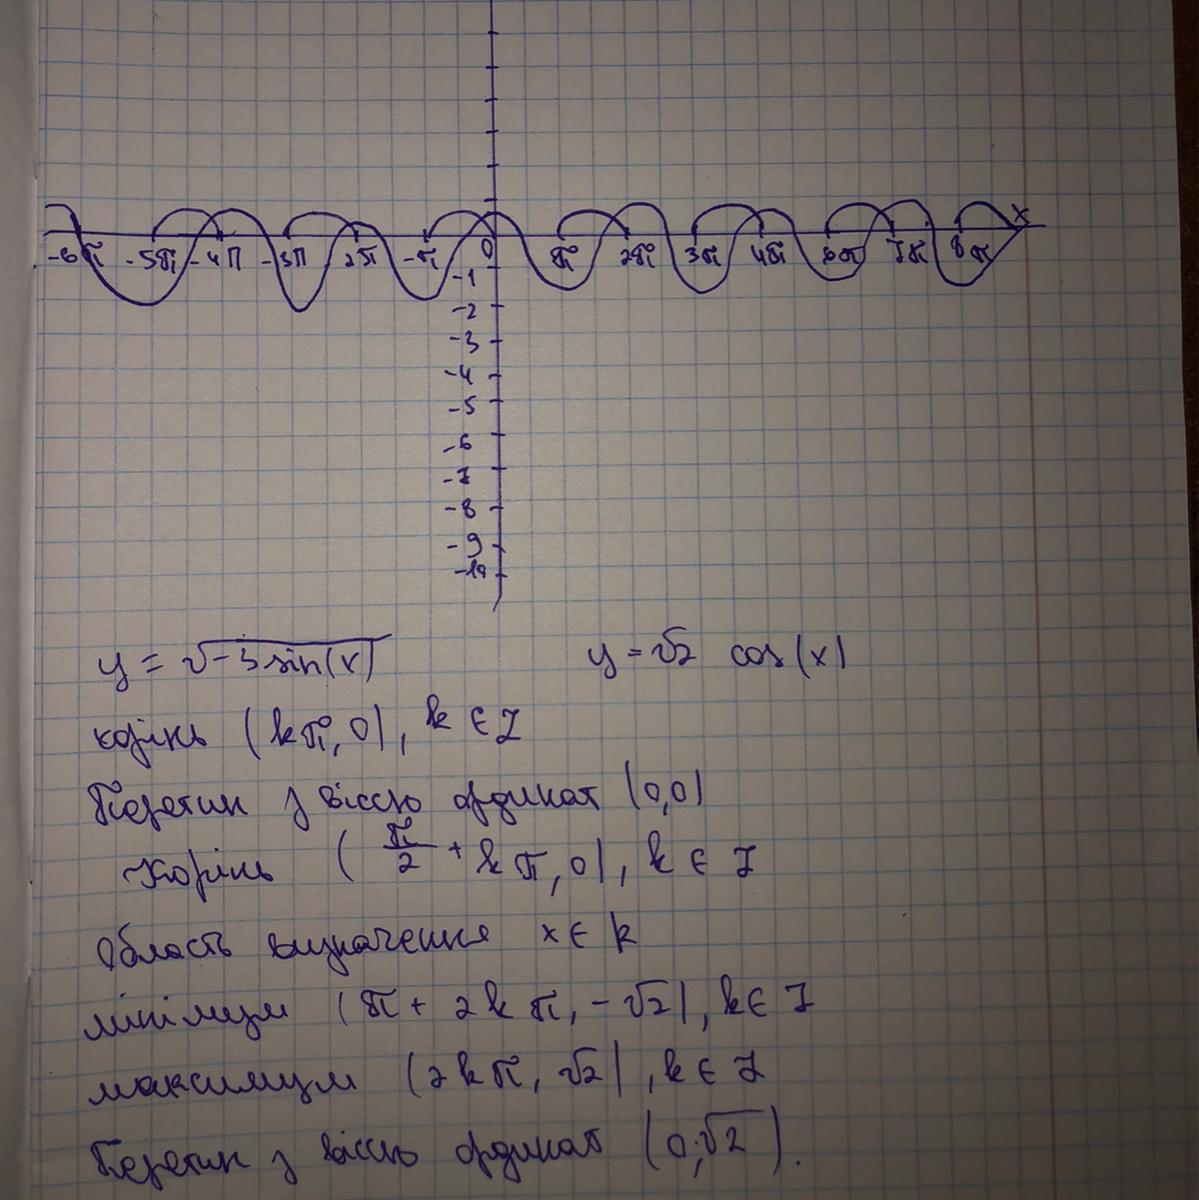 x
-6π -5π -4π -3π 2π -π 0 π 2π 3π 4π 6π 7π 8π
-1
-2
-3
-4
-5
-6
-7
-8
-9
-10
y = √-3 sin(x) y = √2 cos(x)
корінь (kπ, 0), k ∈ Z
Перетин з віссю ординат (0,0)
Корінь (π/2 + kπ, 0), k ∈ Z
Область визначення x ∈ R
мінімум (π + 2kπ, -√2), k ∈ Z
максимум (2kπ, √2), k ∈ Z
Перетин з віссю ординат (0; √2).